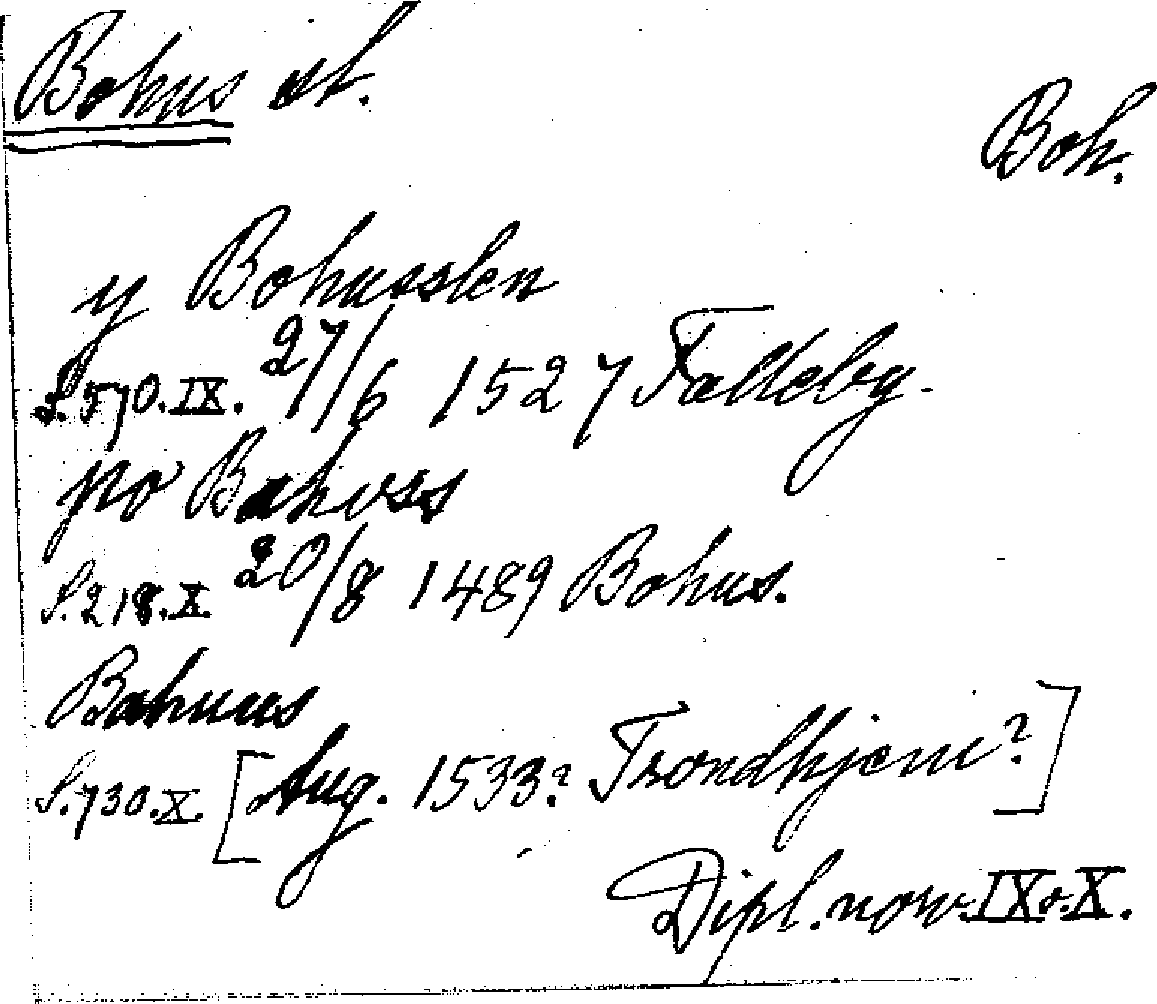 Bohus sl.
Boh.
y Bohusslen
S. 570. IX. 27/6 1527 Falleby.
po Bahuss
S. 218. X. 20/8 1489 Bohus.
Bahuus
S. 730. X. [Aug. 1533? Trondhjem?]
Dipl. norv. IX o. X.